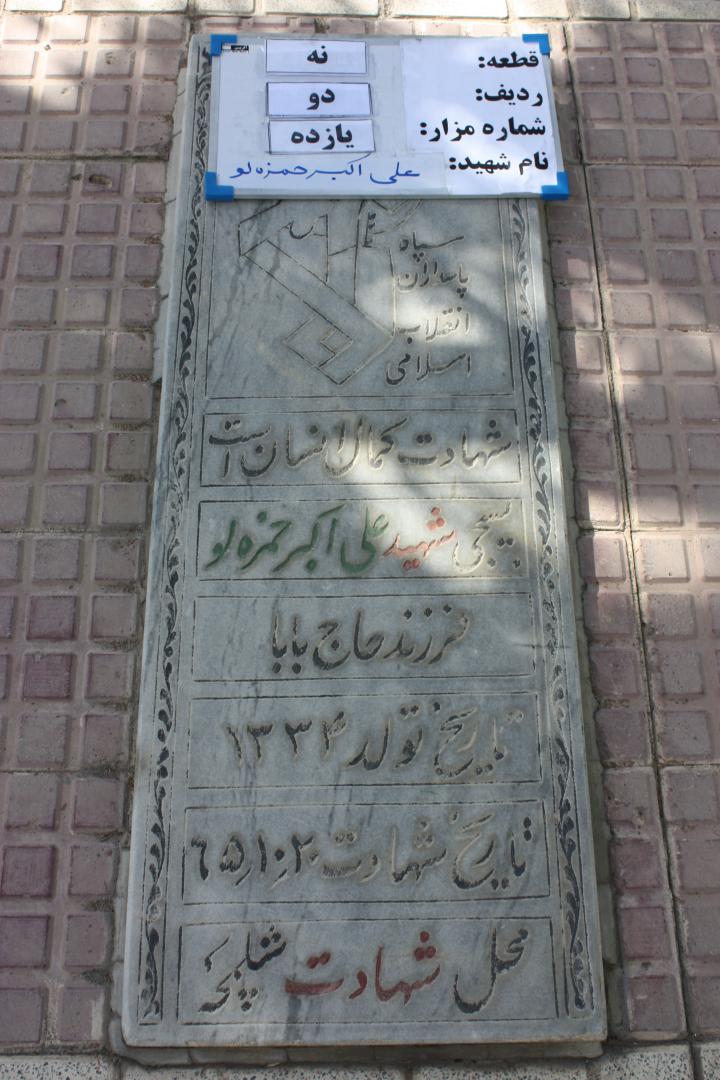 قطعه: نه
ردیف: دو
شماره مزار: یازده
نام شهید: علی اکبر حمزه لو
سپاه
پاسداران
انقلاب
اسلامی
شهادت کمال انسان است
بسیجی شهید علی اکبر حمزه لو
فرزند حاج بابا
تاریخ تولد ۱۳۳۴
تاریخ شهادت ۶۵٫۱۰٫۲۰
محل شهادت شلمچه